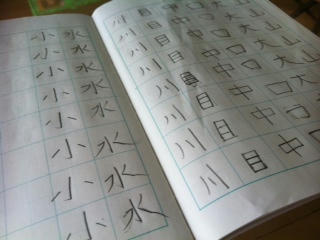 小 水
小 水
小 水
小 水
小 水
小 水
小 水
小 水
川 目 中 口 大 山
川 目 中 口 大 山
川 目 中 口 大 山
川 目 中 口 大 山
川 目 中 口 大
川 目 中 口 大
川 目 中